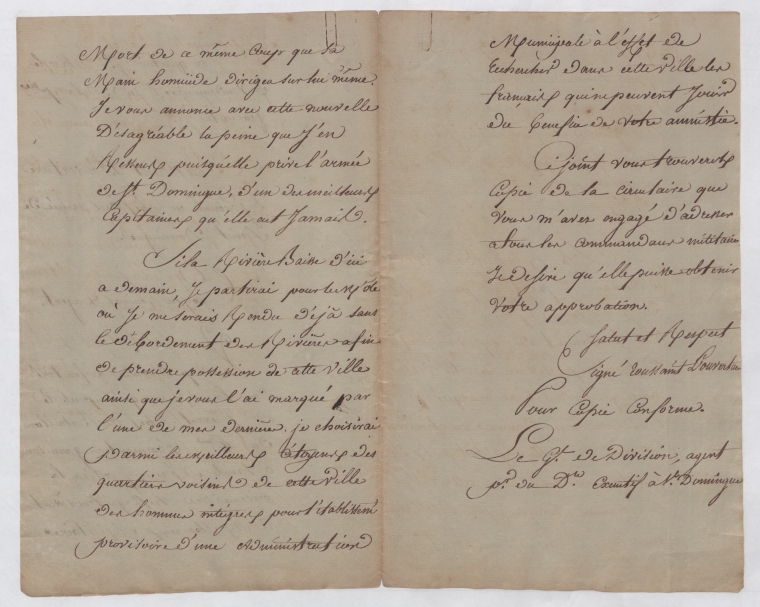 Mort de ce même Coup que sa
Main homicide dirigea sur lui même.
Je vous annonce avec cette nouvelle
Désagréable la peine que J'en
Ressens puisqu'elle prive l'armée
de St. Domingue, d'un des meilleurs
Capitaines qu'elle eut Jamais.
Si la Rivière Baisse d'ici
a demain, Je partirai pour le Môle
où Je me serais Rendu déjà sans
le débordement des Rivières afin
de prendre possession de cette ville
ainsi que je vous l'ai marqué par
l'une de mes dernières. je choisirai
parmi les meilleurs Citoyens des
quartiers voisins de cette ville
des hommes intègres pour l'établissemt
provisoire d'une Administration
Municipale à l'effet de
Rechercher dans cette ville les
français qui ne peuvent Jouir
du Benefice de votre amnistie.
Cijoint vous trouverez
Copie de la circulaire que
vous m'avez engagé d'adresser
a tous les commandans militaires
Je desire qu'elle puisse obtenir
votre approbation.
Salut et Respect
Signé Toussaint Louverture
Pour Copie Conforme.
Le Gl. de Division, agent
pr. du D.re Exécutif à St. Domingue